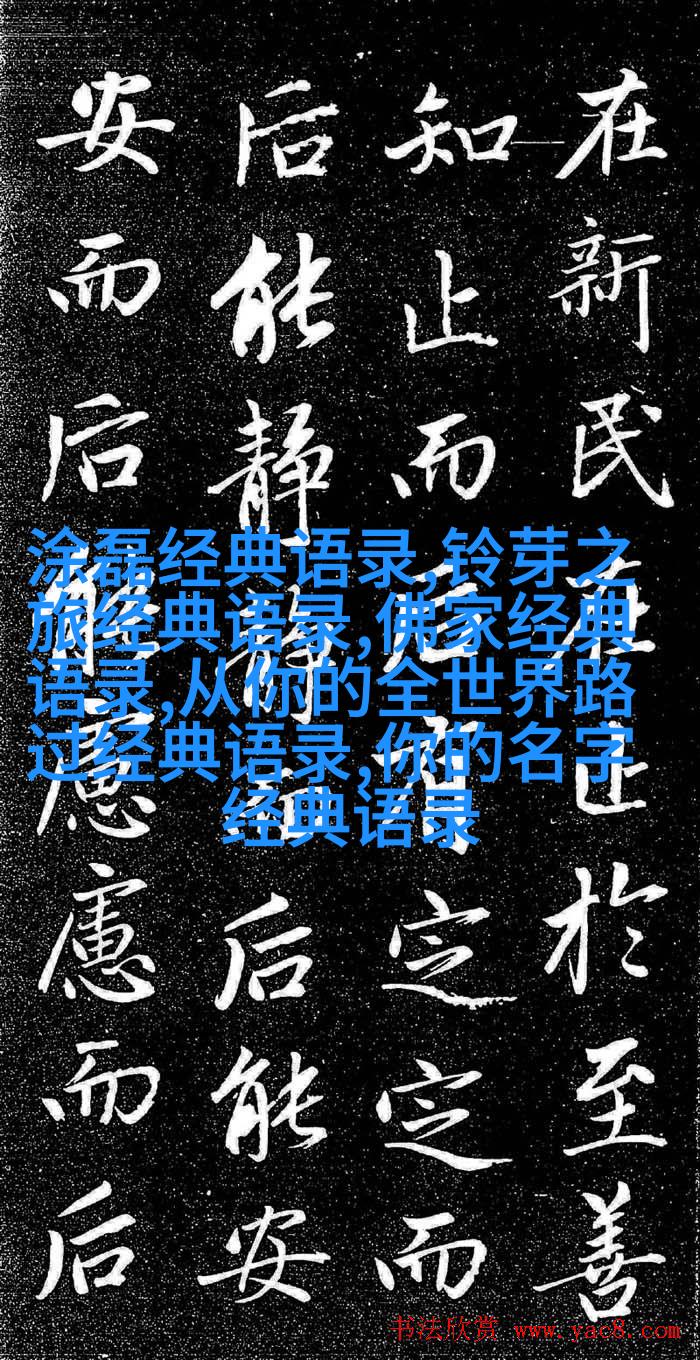 在新民在止於至善
知止而后有定定而
后能静静而后能安
安而后能慮慮而后
涂磊经典语录,铃芽之
旅经典语录,佛家经典
语录,从你的全世界路
过经典语录,你的名字
经典语录
书法欣赏 www.yac8.com